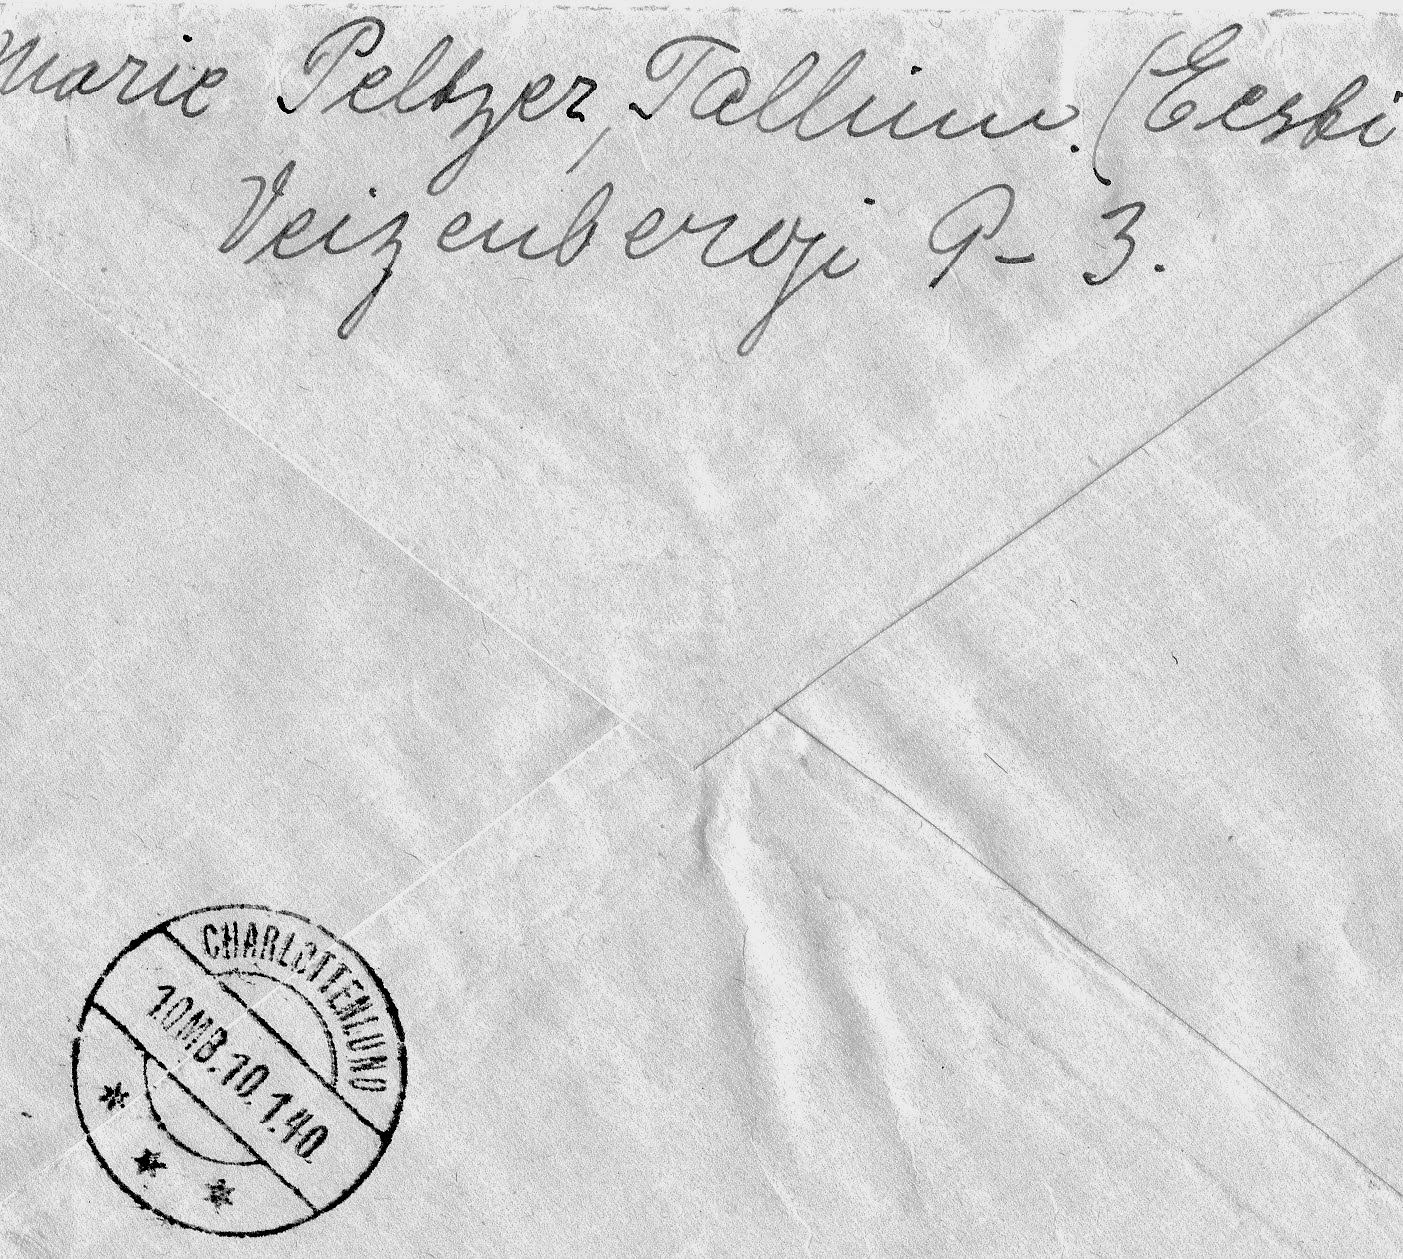 Marie Peltzer, Tallinn. (Eesti
Veizenbergi 9-3.
CHARLOTTENLUND
10MB.10.1.40.